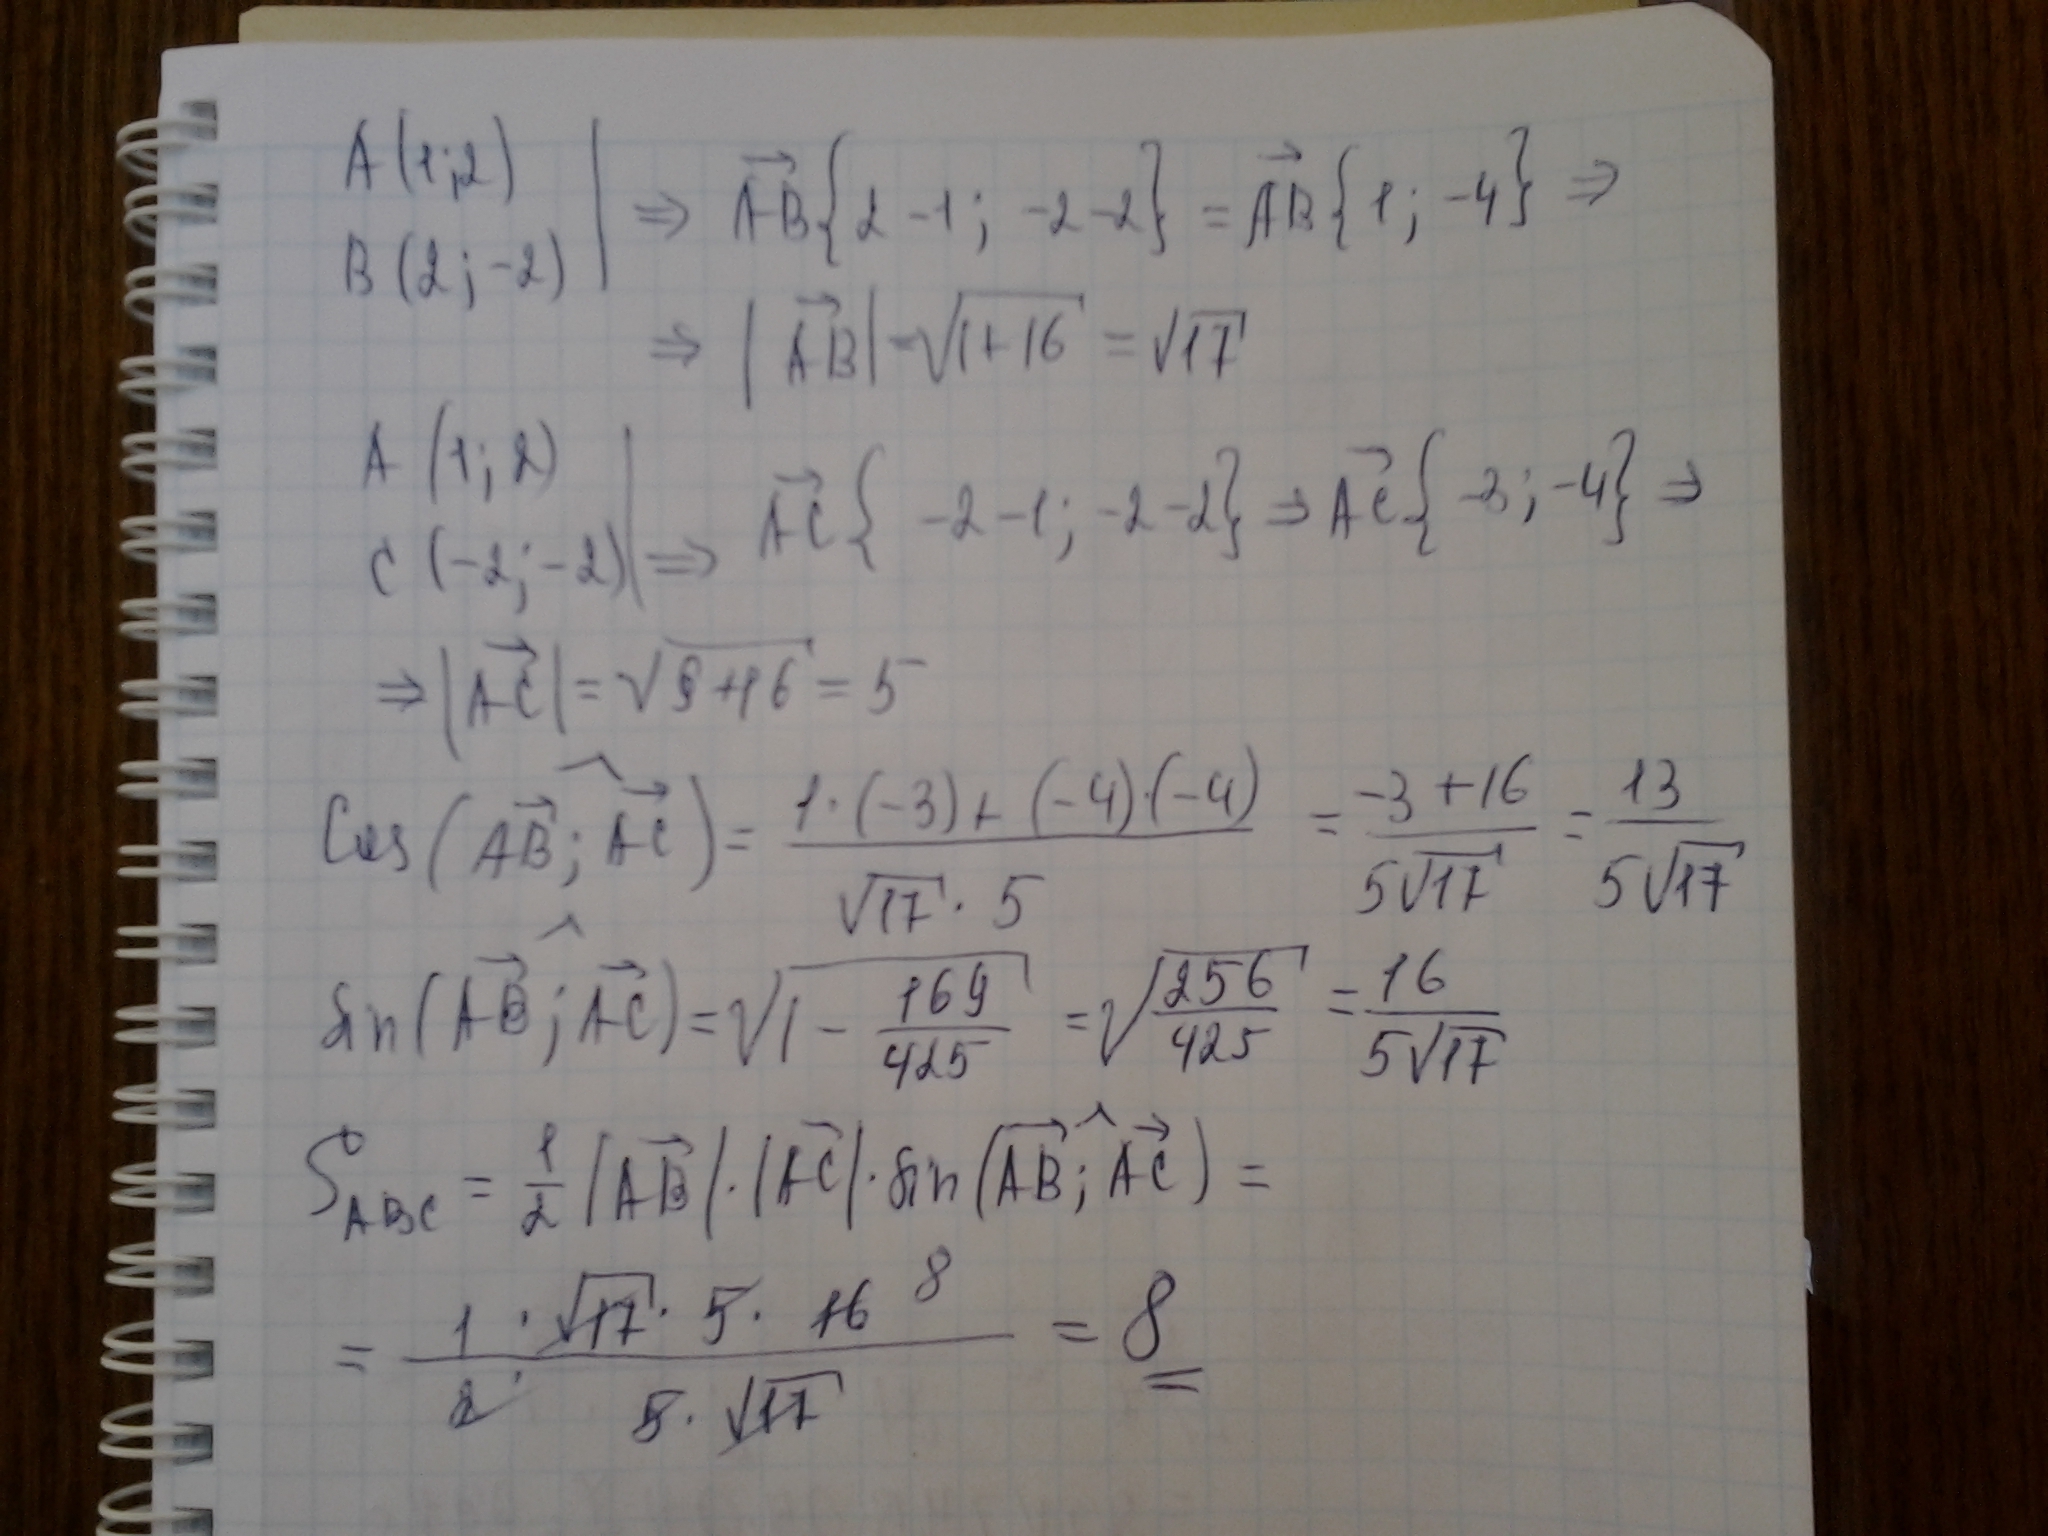 A(1;2) | ⇒ AB{2-1; -2-2} = AB{1; -4} ⇒
B(2;-2) |
⇒ |AB| = √(1+16) = √17
A(1;2) | AC{-2-1; -2-2} ⇒ AC{-3; -4} ⇒
C(-2;-2) | ⇒
⇒ |AC| = √(9+16) = 5
Cos(AB;^AC) = (1·(-3)+(-4)·(-4))/(√17·5) = (-3+16)/(5√17) = 13/(5√17)
Sin(AB;^AC) = √(1 - 169/425) = √(256/425) = 16/(5√17)
S_ABC = 1/2 |AB|·|AC|·Sin(AB;^AC) =
= (1·√17·5·16 8)/(2·5·√17) = 8